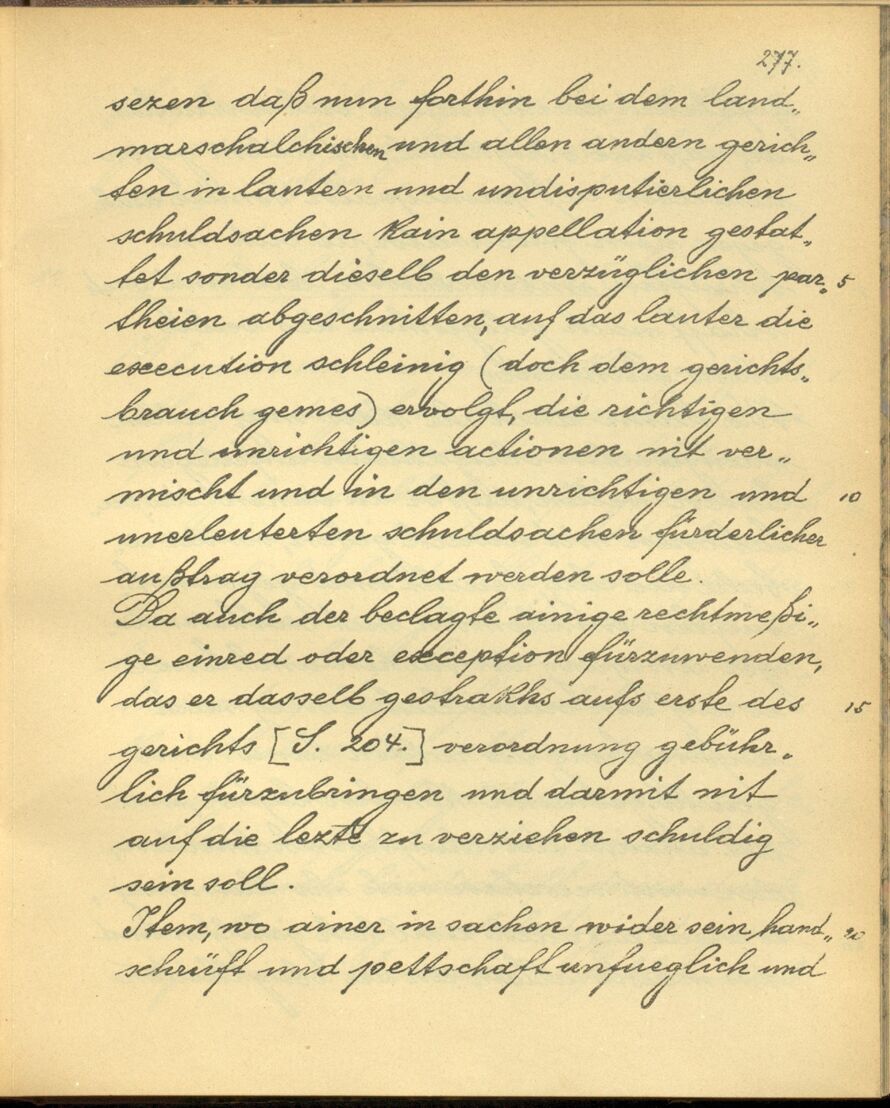 277.
sezen daß nun forthin bei dem land„
marschalchischen und allen andern gerich„
ten in lautern und undisputierlichen
schuldsachen kain appellation gestat„
tet sonder dieselb den verzüglichen par„ 5
theien abgeschnitten, auf das lauter die
execution schleinig (doch dem gerichts„
brauch gemes) ervolgt, die richtigen
und unrichtigen actionen nit ver„
mischt und in den unrichtigen und 10
unerleuterten schuldsachen fürderlicher
außtrag verordnet werden solle.
Da auch der beclagte ainige rechtmeßi„
ge einred oder exception fürzuwenden,
das er dasselb gestrakhs aufs erste des 15
gerichts [S. 204.] verordnung gebühr„
lich fürzubringen und darmit nit
auf die lezte zu verziehen schuldig
sein soll.
Item, wo ainer in sachen wider sein hand„ 20
schrüft und pettschaft unfueglich und